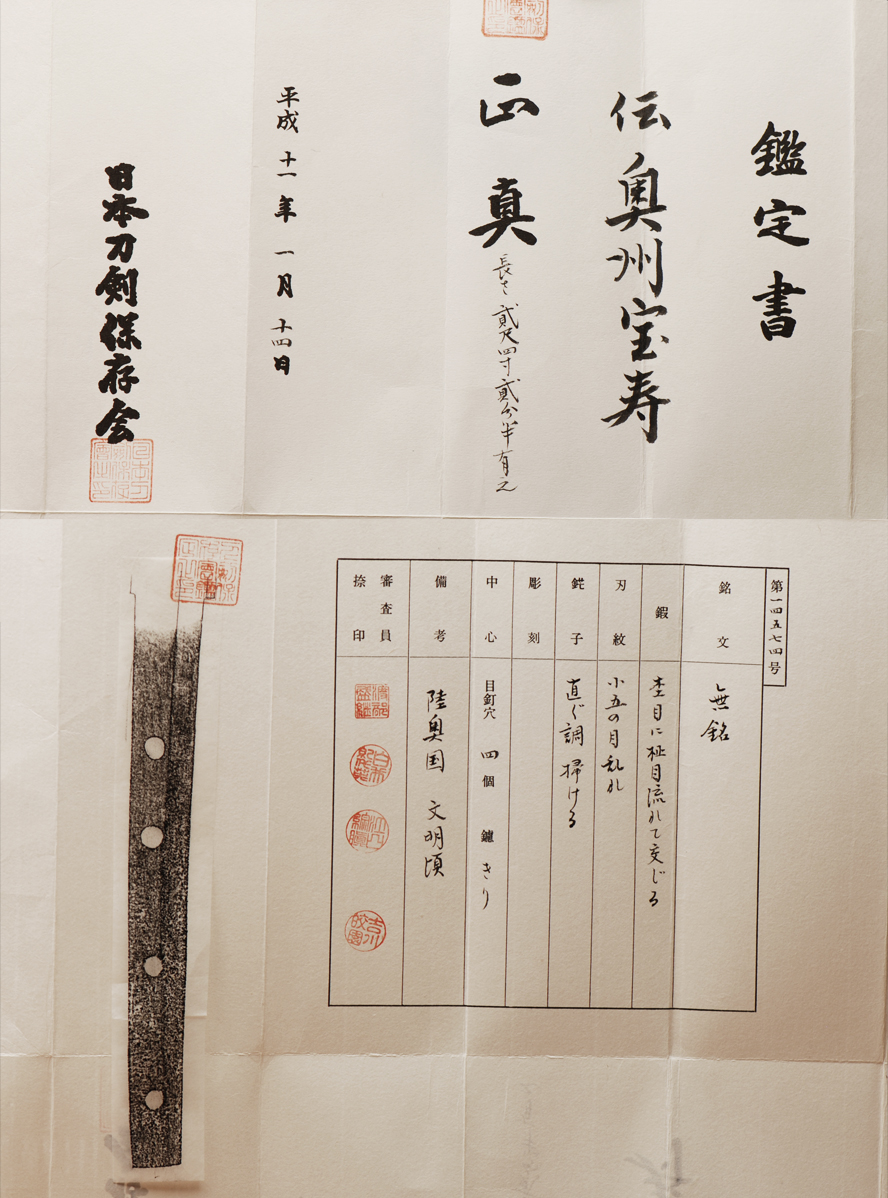 鑑定書
伝奥州宝寿
正真
長さ貳尺四寸貳分半有之
平成十一年一月十四日
日本刀剣保存会
第一四五七四号
銘文
無銘
鍜
杢目に柾目流れて交じる
刃紋
小五の目乱れ
鋩子
直ぐ調掃ける
彫刻
中心
目釘穴 四個 鑢 きり
備考
陸奥国 文明頃
審査員
捺印
吉川